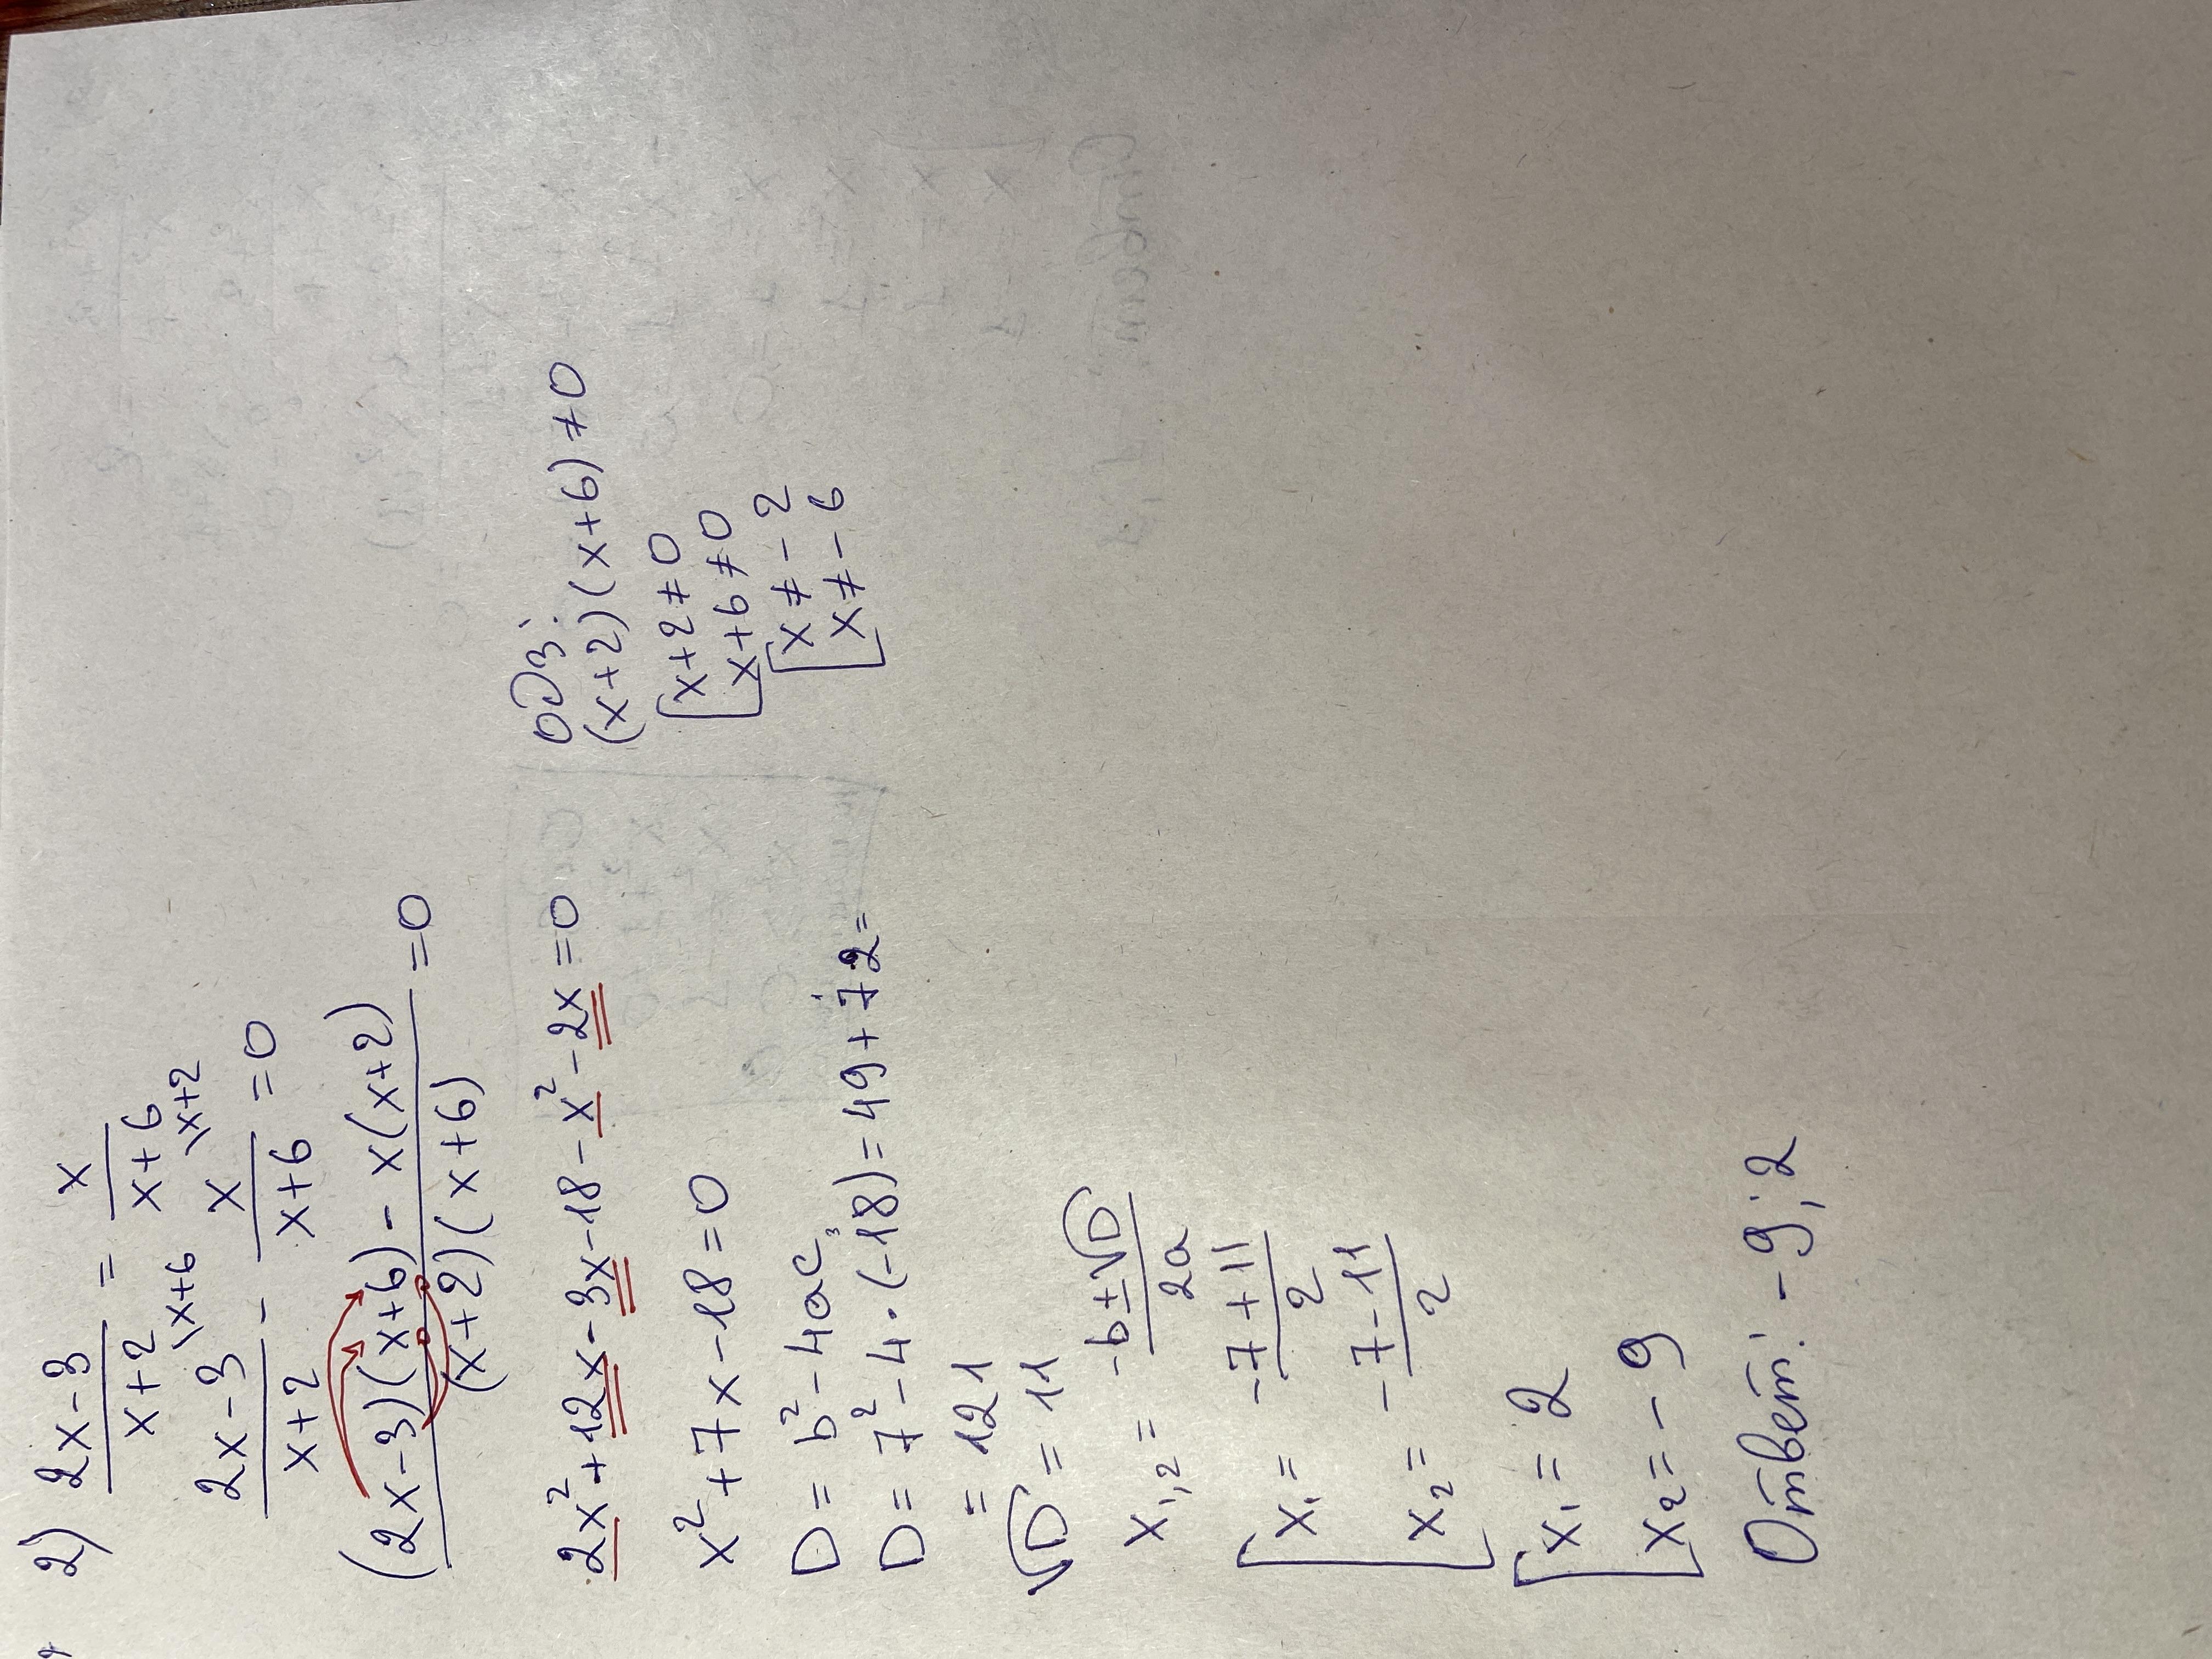 2) \frac{2x-3}{x+2} = \frac{x}{x+6}
\frac{2x-3}{x+2}^{\x+6} - \frac{x}{x+6}^{\x+2} = 0
\frac{(2x-3)(x+6) - x(x+2)}{(x+2)(x+6)} = 0
2x²+12x-3x-18-x²-2x=0
x²+7x-18=0
D = b²-4ac;
D = 7²-4·(-18)=49+72=
= 121
√D = 11
x₁,₂ = \frac{-b±√D}{2a}
[ x₁ = \frac{-7+11}{2}
x₂ = \frac{-7-11}{2}
[ x₁ = 2
x₂ = -9
Ответ: -9; 2
ОДЗ:
(x+2)(x+6)≠0
[ x+2≠0
x+6≠0
[ x≠-2
x≠-6